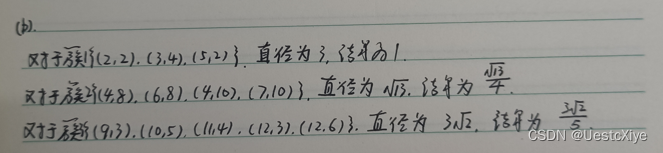 (b).
对于簇1{(2,2), (3,4), (5,2)}, 直径为3, 结果为1.
对于簇2{(4,8), (6,8), (4,10), (7,10)}, 直径为√13, 结果为 √13/4.
对于簇3{(9,3), (10,5), (11,4), (12,3), (12,6)}, 直径为 3√2, 结果为 3√2/5
CSDN @UestcXiye